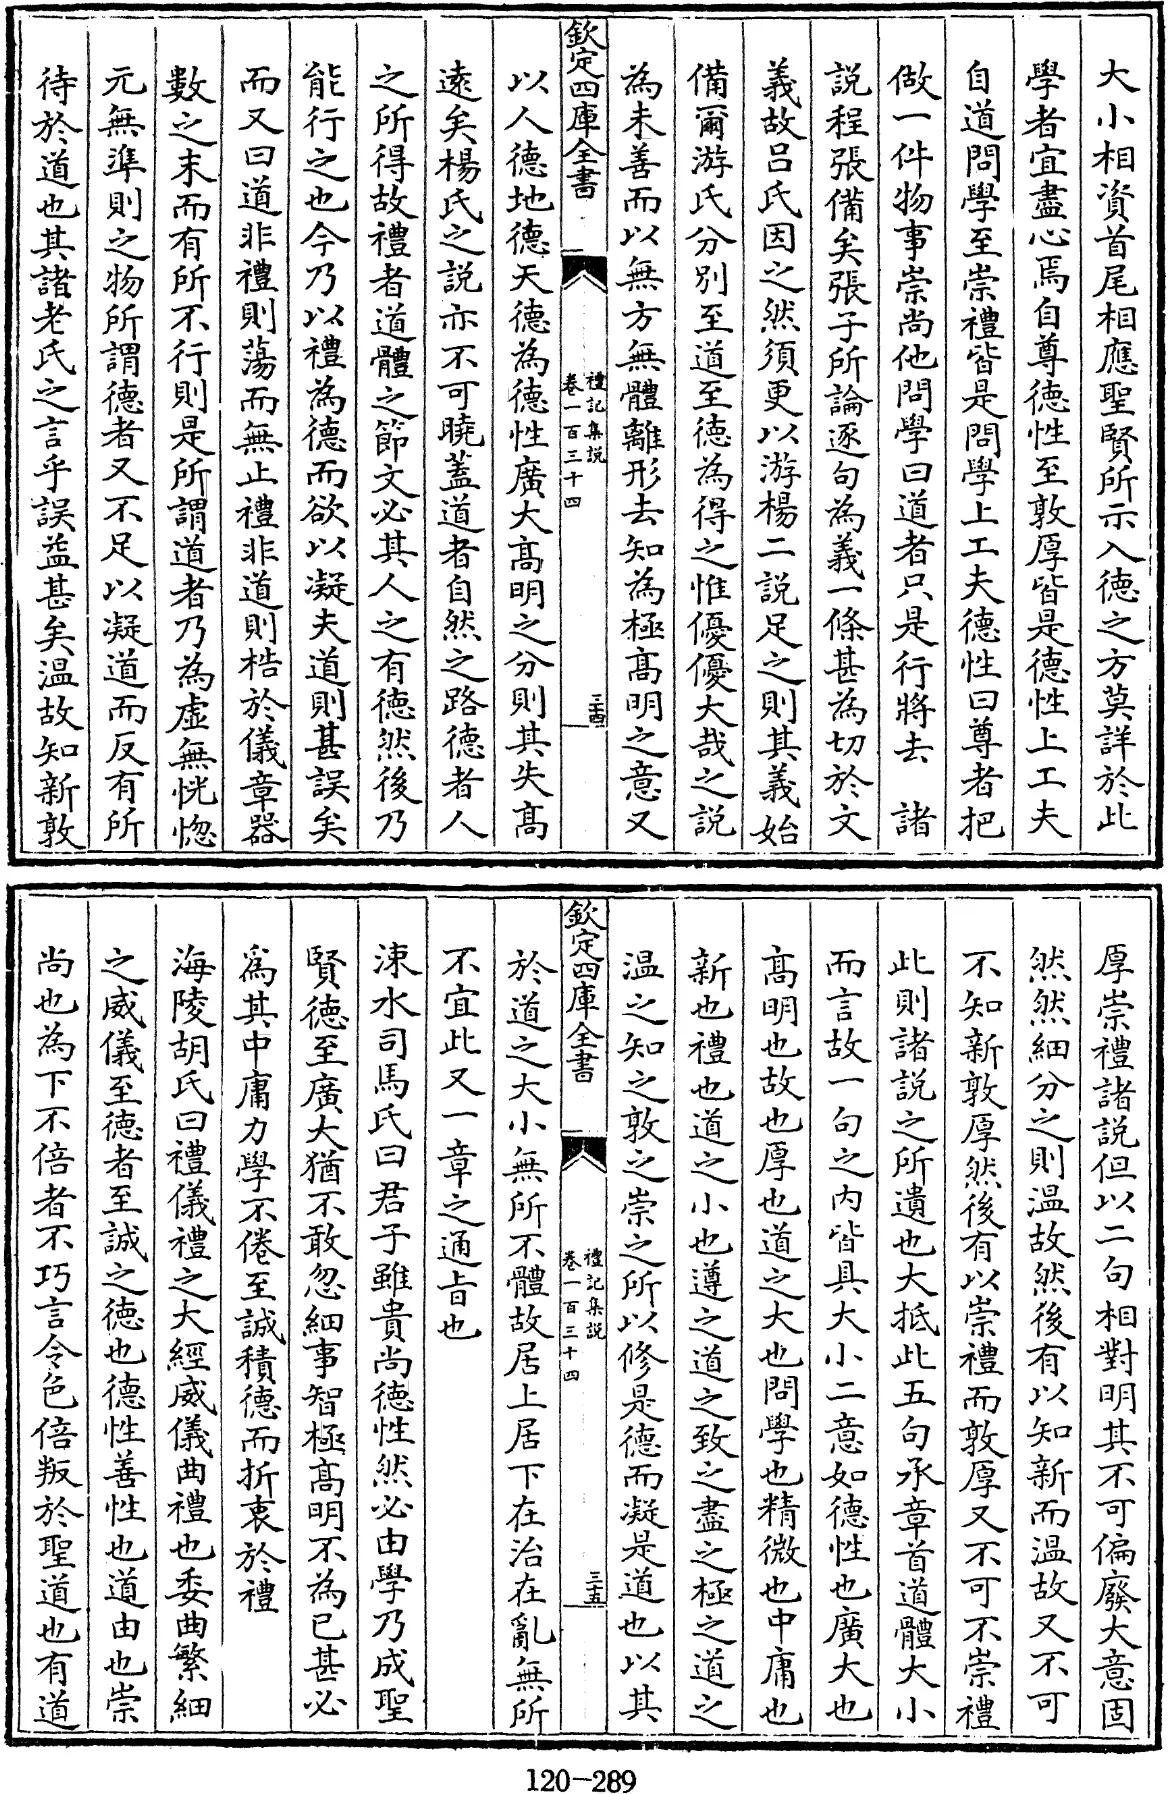 大小相資首尾相應聖賢所示入德之方莫詳於此
學者宜盡心焉自尊德性至敦厚皆是德性上工夫
自道問學至崇禮皆是問學上工夫德性曰尊者把
做一件物事崇尚他問學曰道者只是行將去　諸
説程張備矣張子所論逐句為義一條甚為切於文
義故吕氏因之然須更以游楊二説足之則其義始
備爾游氏分别至道至德為得之惟優優大哉之説
為未善而以無方無體離形去知為極髙明之意又
欽定四庫全書
禮記集説
卷一百三十四
三十四
以人德地德天德為德性廣大髙明之分則其失髙
逺矣楊氏之説亦不可曉葢道者自然之路德者人
之所得故禮者道體之節文必其人之有德然後乃
能行之也今乃以禮為德而欲以凝夫道則甚誤矣
而又曰道非禮則蕩而無止禮非道則梏於儀章器
數之末而有所不行則是所謂道者乃為虚無恍惚
元無準則之物所謂德者又不足以凝道而反有所
待於道也其諸老氏之言乎誤益甚矣温故知新敦
厚崇禮諸説但以二句相對明其不可偏廢大意固
然然細分之則温故然後有以知新而温故又不可
不知新敦厚然後有以崇禮而敦厚又不可不崇禮
此則諸説之所遺也大抵此五句承章首道體大小
而言故一句之内皆具大小二意如德性也廣大也
髙明也故也厚也道之大也問學也精微也中庸也
新也禮也道之小也遵之道之致之盡之極之道之
温之知之敦之崇之所以修是德而凝是道也以其
欽定四庫全書
禮記集説
卷一百三十四
三十五
於道之大小無所不體故居上居下在治在亂無所
不宜此又一章之通旨也
涑水司馬氏曰君子雖貴尚德性然必由學乃成聖
賢德至廣大猶不敢忽細事智極髙明不為已甚必
爲其中庸力學不倦至誠積德而折衷於禮
海陵胡氏曰禮儀禮之大經威儀曲禮也委曲繁細
之威儀至德者至誠之德也德性善性也道由也崇
尚也為下不倍者不巧言令色倍叛於聖道也有道
120-289